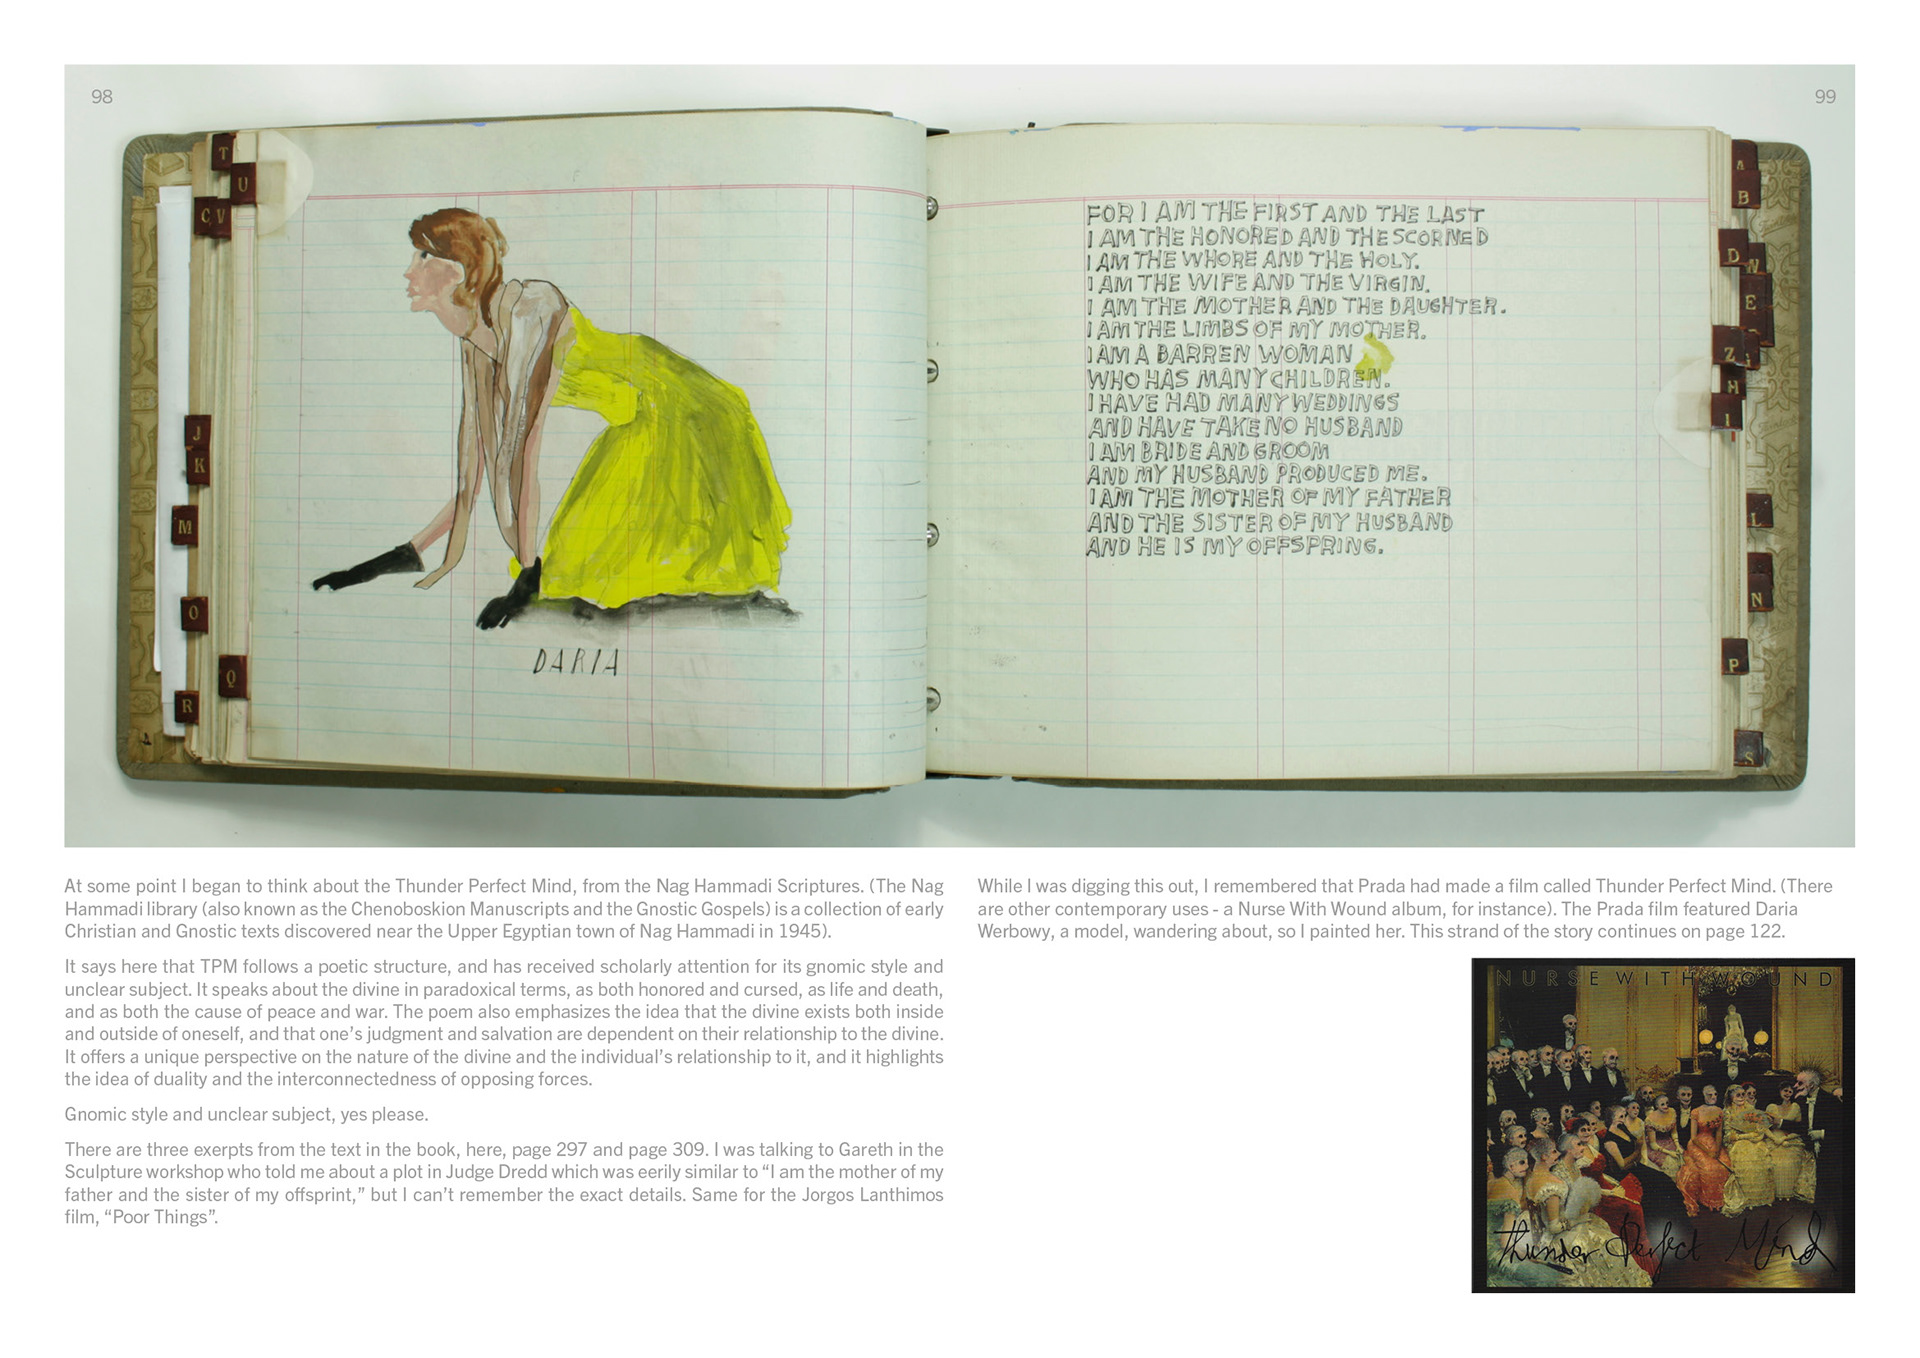 98
99
T
U
C V
J
K
M
O
Q
R
DARIA
FOR I AM THE FIRST AND THE LAST
I AM THE HONORED AND THE SCORNED
I AM THE WHORE AND THE HOLY.
I AM THE WIFE AND THE VIRGIN.
I AM THE MOTHER AND THE DAUGHTER.
I AM THE LIMBS OF MY MOTHER.
I AM A BARREN WOMAN
WHO HAS MANY CHILDREN.
I HAVE HAD MANY WEDDINGS
AND HAVE TAKE NO HUSBAND
I AM BRIDE AND GROOM
AND MY HUSBAND PRODUCED ME.
I AM THE MOTHER OF MY FATHER
AND THE SISTER OF MY HUSBAND
AND HE IS MY OFFSPRING.
A
B
D
W
E
Z
H
I
L
N
P
S
At some point I began to think about the Thunder Perfect Mind, from the Nag Hammadi Scriptures. (The Nag
Hammadi library (also known as the Chenoboskion Manuscripts and the Gnostic Gospels) is a collection of early
Christian and Gnostic texts discovered near the Upper Egyptian town of Nag Hammadi in 1945).
It says here that TPM follows a poetic structure, and has received scholarly attention for its gnomic style and
unclear subject. It speaks about the divine in paradoxical terms, as both honored and cursed, as life and death,
and as both the cause of peace and war. The poem also emphasizes the idea that the divine exists both inside
and outside of oneself, and that one's judgment and salvation are dependent on their relationship to the divine.
It offers a unique perspective on the nature of the divine and the individual's relationship to it, and it highlights
the idea of duality and the interconnectedness of opposing forces.
Gnomic style and unclear subject, yes please.
There are three exerpts from the text in the book, here, page 297 and page 309. I was talking to Gareth in the
Sculpture workshop who told me about a plot in Judge Dredd which was eerily similar to “I am the mother of my
father and the sister of my offsprint,” but I can't remember the exact details. Same for the Jorgos Lanthimos
film, “Poor Things”.
While I was digging this out, I remembered that Prada had made a film called Thunder Perfect Mind. (There
are other contemporary uses - a Nurse With Wound album, for instance). The Prada film featured Daria
Werbowy, a model, wandering about, so I painted her. This strand of the story continues on page 122.
NURSE WITH WOUND
Thunder Perfect Mind